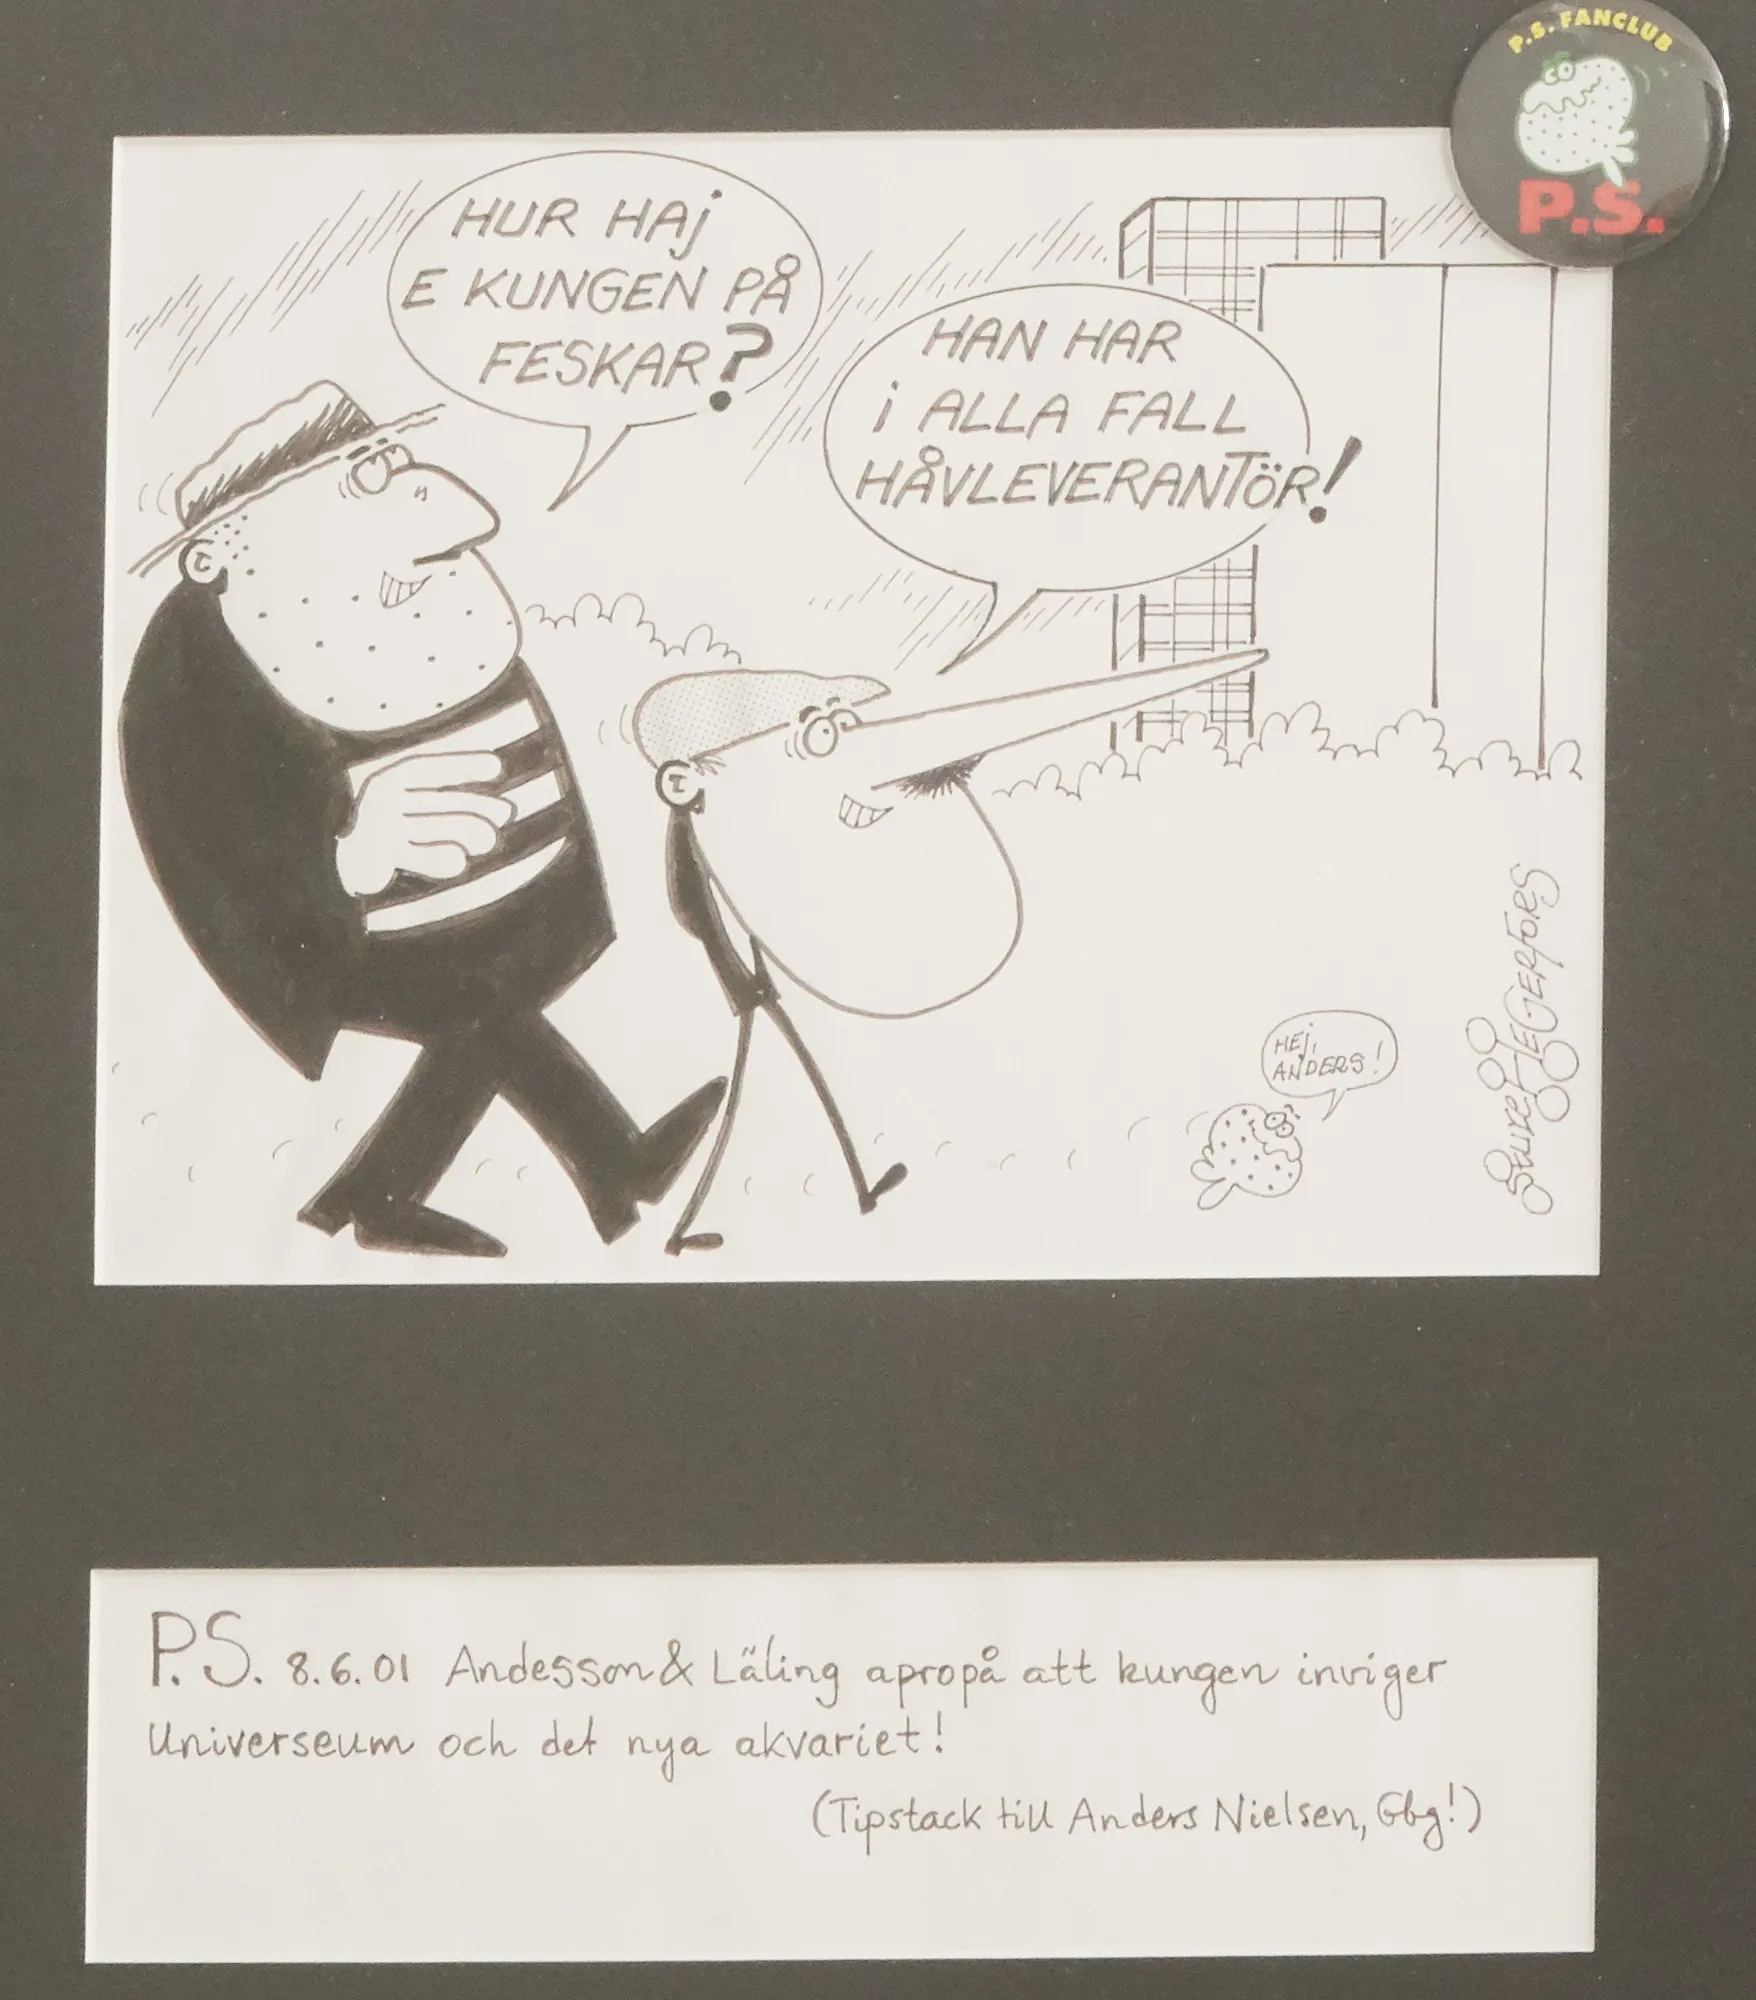 P.S. FANCLUB
P.S.
HUR HAJ
E KUNGEN PÅ
FESKAR?
HAN HAR
I ALLA FALL
HÅVLEVERANTÖR!
HEJ,
ANDERS!
STURE HEGERFORS
P.S. 8.6.01 Andesson & Läling apropå att kungen inviger
Universeum och det nya akvariet!
(Tipstack till Anders Nielsen, Gbg!)